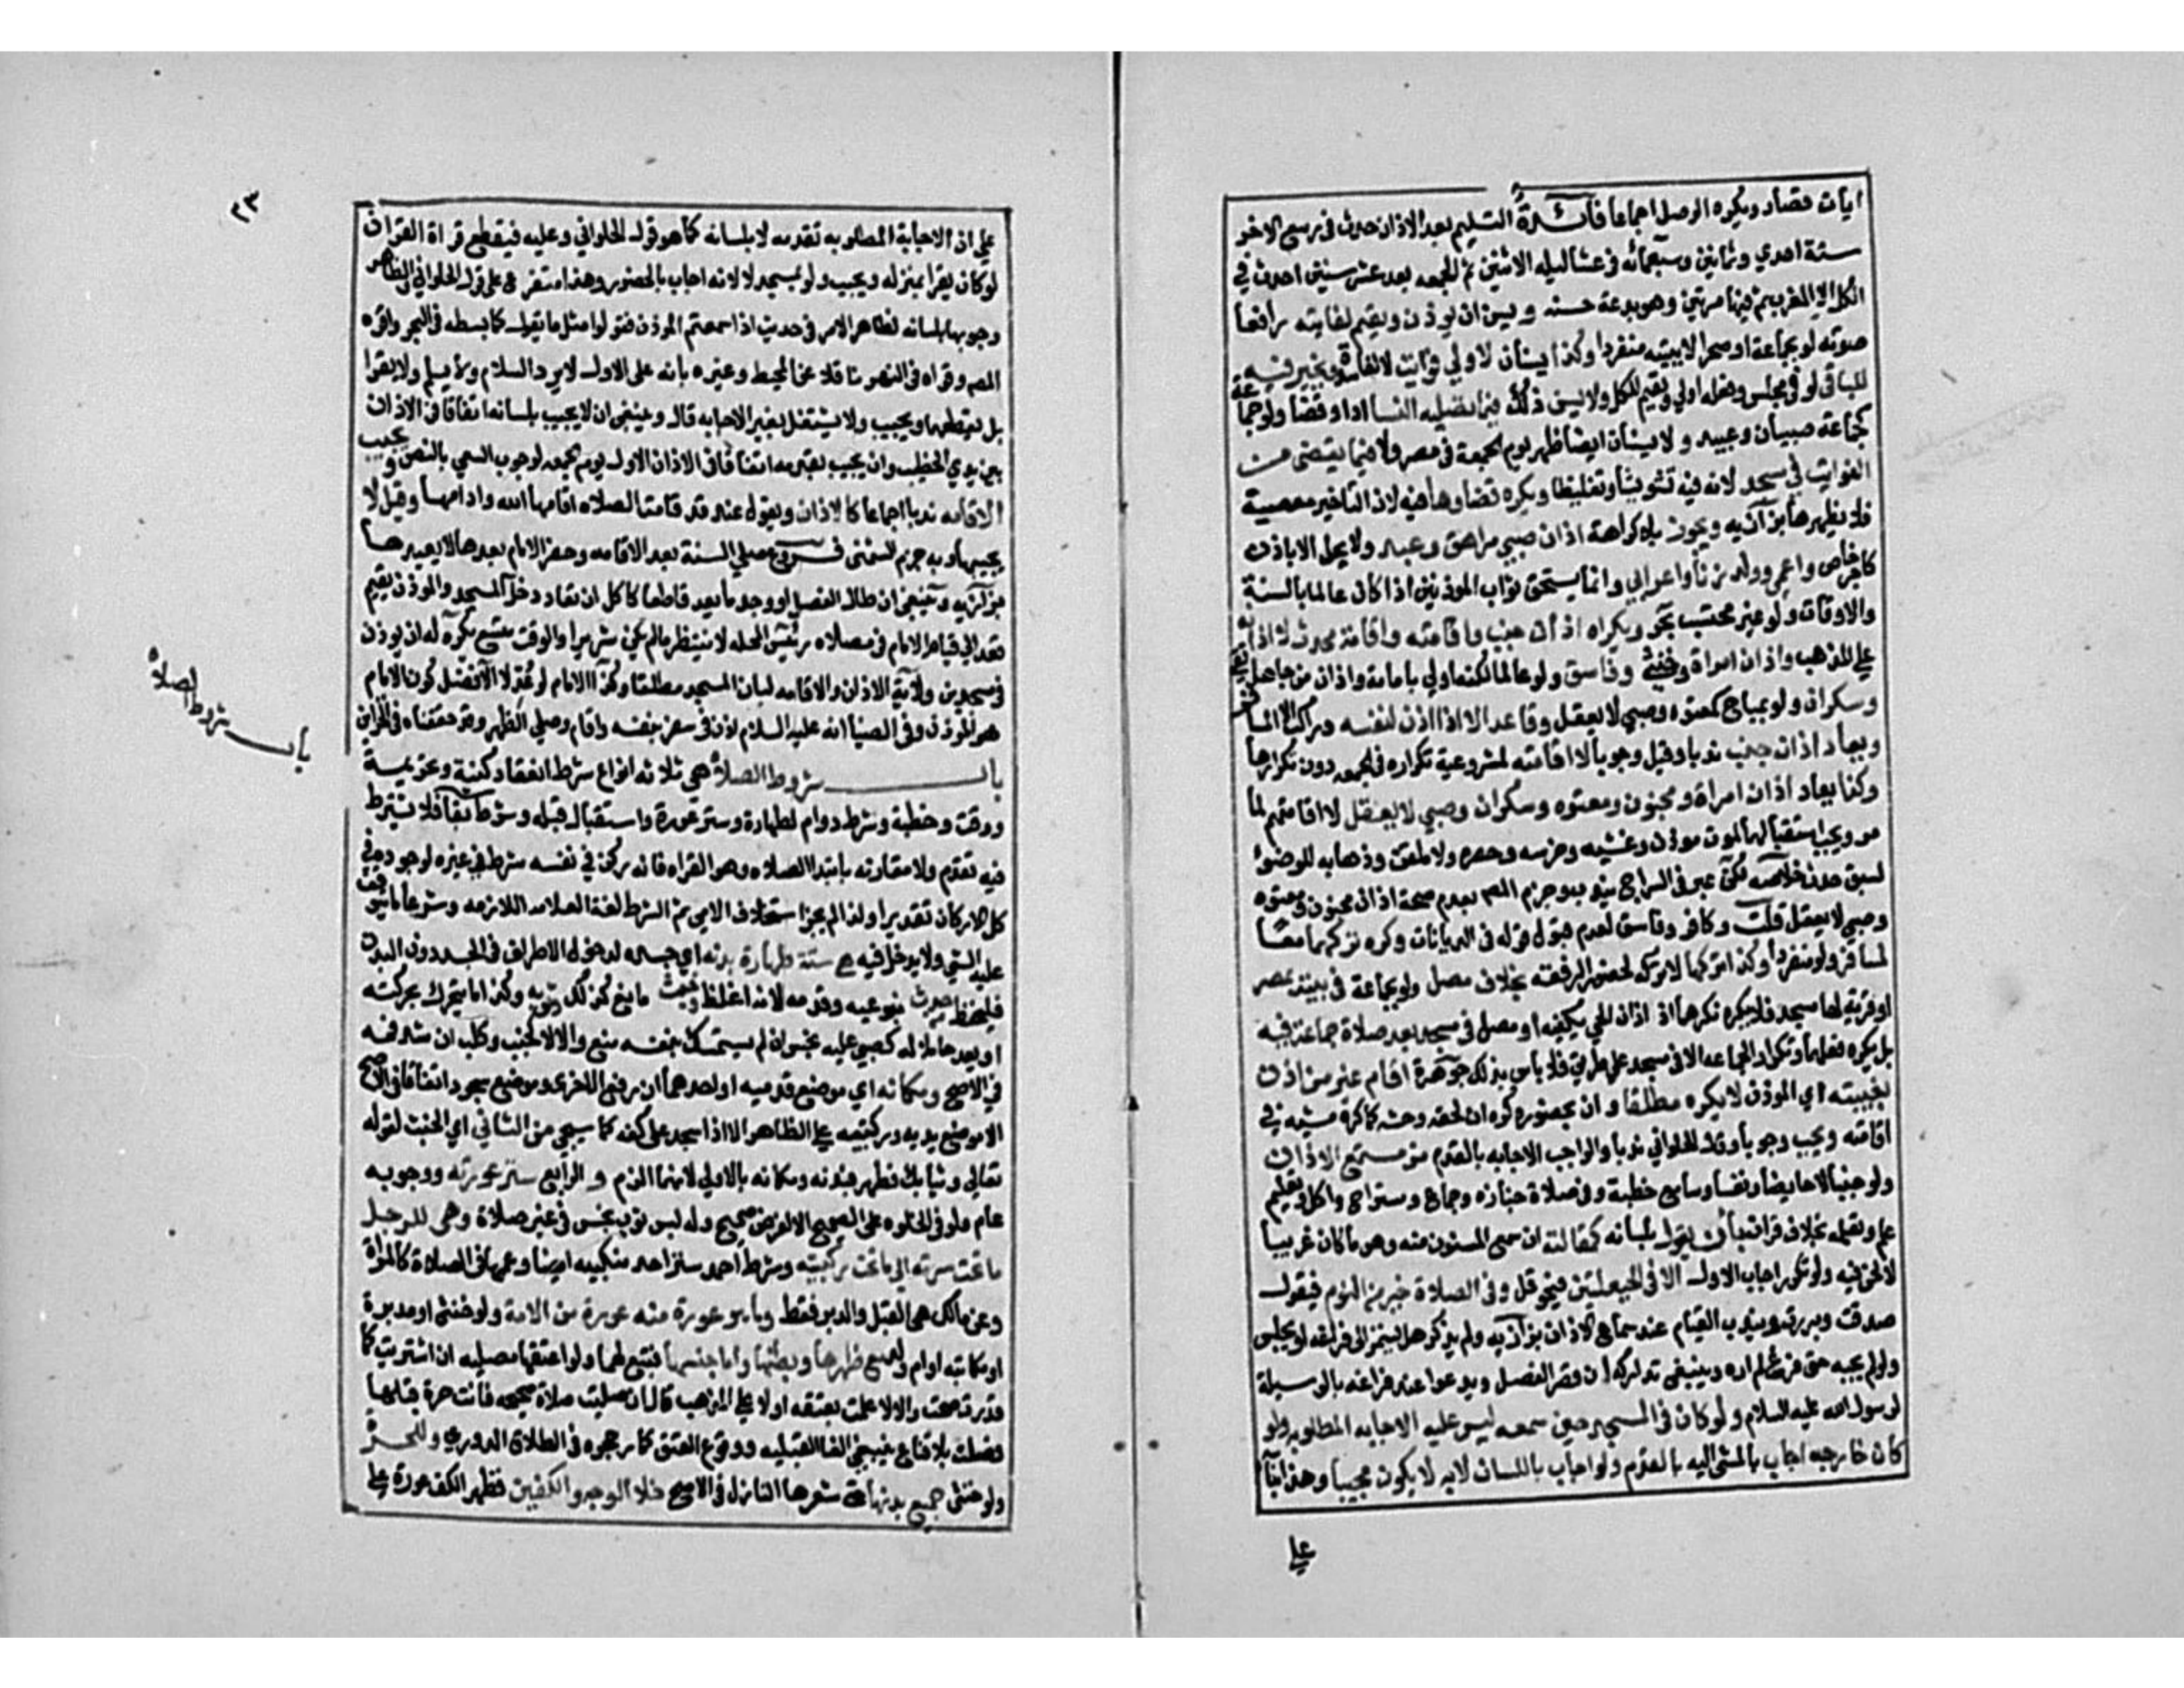 ايات قصار ويكره الوصل اجماعا فائدة التسليم بعد الاذان حدث في ربيع الاخر
سنة احدي وثمانين وسبعمائه في عشا ليله الاثنين ثم الجمعه بعد عشر سنين احدث في
الكل الا المغرب ثم فيها مرتين وهو بدعة حسنه ويسن ان يوذن ويقيم لفايته رافعا
صوته لو بجماعة او صحرا لا ببيته منفردا وكذا يسنان لاولي فوايت لا لفاسدة ويخير فيه
للباقي لو في مجلس وفعله اولي ويقيم للكل ولا يسن ذلك فيما تصليه النسا ادا وقضا ولو جماعة
كجماعة صبيان وعبيد ولا يسنان ايضا لظهر يوم الجمعة في مصر ولا فيما يقضي من
الفوايت في مسجد لانه فيه تشويشا وتغليطا ويكره قضاوها فيه لان التاخير معصية
فلا يظهرها بزازيه ويجوز بلا كراهة اذان صبي مراهق وعبد ولا يحل الا باذن
كاجر خاص واعمي وولد زنا واعرابي وانما يستحق ثواب الموذنين اذا كان عالما بالسنة
والاوقات ولو غير محتسب بحر ويكره اذان جنب واقامته واقامة محدث لا اذانه
علي المذهب واذان امراة وخنثي وفاسق ولو عالما لكنه اولي بامامة واذان من جاهل تقي
وسكران ولو بمباح كمعتوه وصبي لا يعقل وقاعد الا اذا اذن لنفسه وراكب الا المسافر
ويعاد اذان جنب ندبا وقيل وجوبا لا اقامته لمشروعية تكراره في الجمعه دون تكرارها
وكذا يعاد اذان امراة ومجنون ومعتوه وسكران وصبي لا يعقل لا اقامتهم لما
مر ويجب استقبالهما لموت موذن وغشيه وخرسه وحصره ولا ملقن وذهابه للوضوء
لسبق حدث خلاصه لكن عبر في السراج بيندب وجزم المص بعدم صحة اذان مجنون ومعتوه
وصبي لا يعقل قلت وكافر وفاسق لعدم قبول قوله في الديانات وكره تركهما معا
لمسافر ولو منفردا وكذا تركها لا تركه لحضور الرفقه بخلاف مصل ولو بجماعة في بيته بمصر
او قرية لها مسجد فلا يكره تركهما اذ اذان الحي يكفيه او مصل في مسجد بعد صلاة جماعة فيه
بل يكره فعلهما وتكرار الجماعه الا في مسجد علي طريق فلا باس بذلك جوهرة اقام غير من اذن
بغيبته اي الموذن لا يكره مطلقا وان بحضوره كره ان لحقه وحشه كما كره مشيه في
اقامته ويجب وجوبا وقال الحلواني ندبا والواجب الاجابه بالقدم من سمع الاذان
ولو جنبا لا حايضا ونفسا وسامع خطبة وفي صلاة جنازه وجماع ومستراح واكل وتعليم
علم وتعلمه بخلاف قران بان يقول بلسانه كمقالته ان سمع المسنون منه وهو ما كان عربيا
لا لحن فيه ولو تكرر اجاب الاول الا في الحيعلتين فيحوقل وفي الصلاة خير من النوم فيقول
صدقت وبررت ويندب القيام عند سماع الاذان بزازيه ولم يذكر هل يستمر الي فراغه او يجلس
ولو لم يجبه حتي فرغ لم اره وينبغي تداركه ان قصر الفصل ويدعوا عند فراغه بالوسيلة
لرسول الله عليه السلام ولو كان في المسجد حين سمعه ليس عليه الاجابه المطلوبه ولو
كان خارجه اجاب بالمشي اليه بالقدم ولو اجاب باللسان لا به لا يكون مجيبا وهذا بنا
علي
٢٣
علي ان الاجابة المطلوبه تقدمه لا بلسانه كما هو قول الحلواني وعليه فيقطع قراة القران
لو كان يقرا بمنزله ويجيب ولو بمسجد لا لانه اجاب بالحضور وهذا متفرع علي قول الحلواني والظاهر
وجوبها بلسانه لظاهر الامر في حديث اذا سمعتم الموذن فقولوا مثل ما يقول كما بسطه في البحر واقره
المص وقواه في النهر ناقلا عن المحيط وغيره بانه علي الاول لا يرد السلام ولا يسلم ولا يقرا
بل يقطعها ويجيب ولا يشتغل بغير الاجابه قال وينبغي ان لا يجيب بلسانه اتفاقا في الاذان
بين يدي الخطيب وان يجيب بقدمه اتفاقا في الاذان الاول يوم الجمعه لوجوب السعي بالنص ويجيب
الاقامه ندبا اجماعا كالاذان ويقول عند قد قامت الصلاه اقامها الله وادامها وقيل لا
يجيبها وبه جزم الشمني فروع صلي السنة بعد الاقامه وحضر الامام بعدها لا يعيدها
بزازيه وينبغي ان طال الفصل او وجد ما يعد قاطعا كاكل ان تعاد دخل المسجد والموذن يقيم
قعد الي قيام الامام في مصلاه رئيس المحله لا ينتظر ما لم يكن شريرا والوقت متسع يكره له ان يوذن
في مسجدين ولاية الاذان والاقامه لباني المسجد مطلقا وكذا الامام لو عدلا الافضل كون الامام
هو الموذن وفي الضيا انه عليه السلام اذن في سفر بنفسه واقام وصلي الظهر وقد حققناه في الخزاين
باب شروط الصلاة هي ثلاثه انواع شرط انعقاد كنية وتحريمة
ووقت وخطبة وشرط دوام كطهارة وستر عورة واستقبال قبله وشرط بقا فلا يشترط
فيه تقدم ولا مقارنه بابتدا الصلاه وهو القراه فانه ركن في نفسه شرط في غيره لوجوده في
كل الاركان تقديرا ولذا لم يجز استخلاف الامي ثم الشرط لغة العلامه اللازمه وشرعا ما يتوقف
عليه الشي ولا يدخل فيه هي ستة طهارة بدنه اي جسده لدخول الاطراف في الجسد دون البدن
فليحفظ من حدث بنوعيه وقدمه لانه اغلظ وخبث مانع كذلك وثوبه وكذا ما يتحرك بحركته
او يعد حاملا له كصبي عليه نجس ان لم يستمسك بنفسه منع والا لا كجنب وكلب ان شد فمه
في الاصح ومكانه اي موضع قدميه او احدهما ان رفع الاخري وموضع سجوده اتفاقا في الاصح
لا موضع يديه وركبتيه علي الظاهر الا اذا سجد علي كفه كما سيجي من الثاني اي الخبث لقوله
تعالي وثيابك فطهر فبدنه ومكانه بالاولي لانهما الزم والرابع ستر عورته ووجوبه
عام ولو في الخلوه علي الصحيح الا لغرض صحيح وله لبس ثوب نجس في غير صلاة وهي للرجل
ما تحت سرته الي ما تحت ركبته وشرط احمد ستر احد منكبيه ايضا وعورتها في الصلاة كالمراة
وعن مالك هي القبل والدبر فقط وما هو عورة منه عورة من الامة ولو خنثي او مدبرة
او مكاتبه او ام ولد مع ظهرها وبطنها واما جنبها فتبع لهما ولو اعتقها مصليه ان استترت كما
قدرت صحت والا لا علمت بعتقه اولا علي المذهب قال ان صليت صلاة صحيحه فانت حرة قبلها
فصلت بلا قناع ينبغي الغا القبليه ووقوع العتق كما رجحوه في الطلاق الدوري وللحرة
ولو خنثي جميع بدنها حتي شعرها النازل في الاصح خلا الوجه والكفين فظهر الكف عورة علي
باب شروط الصلاه